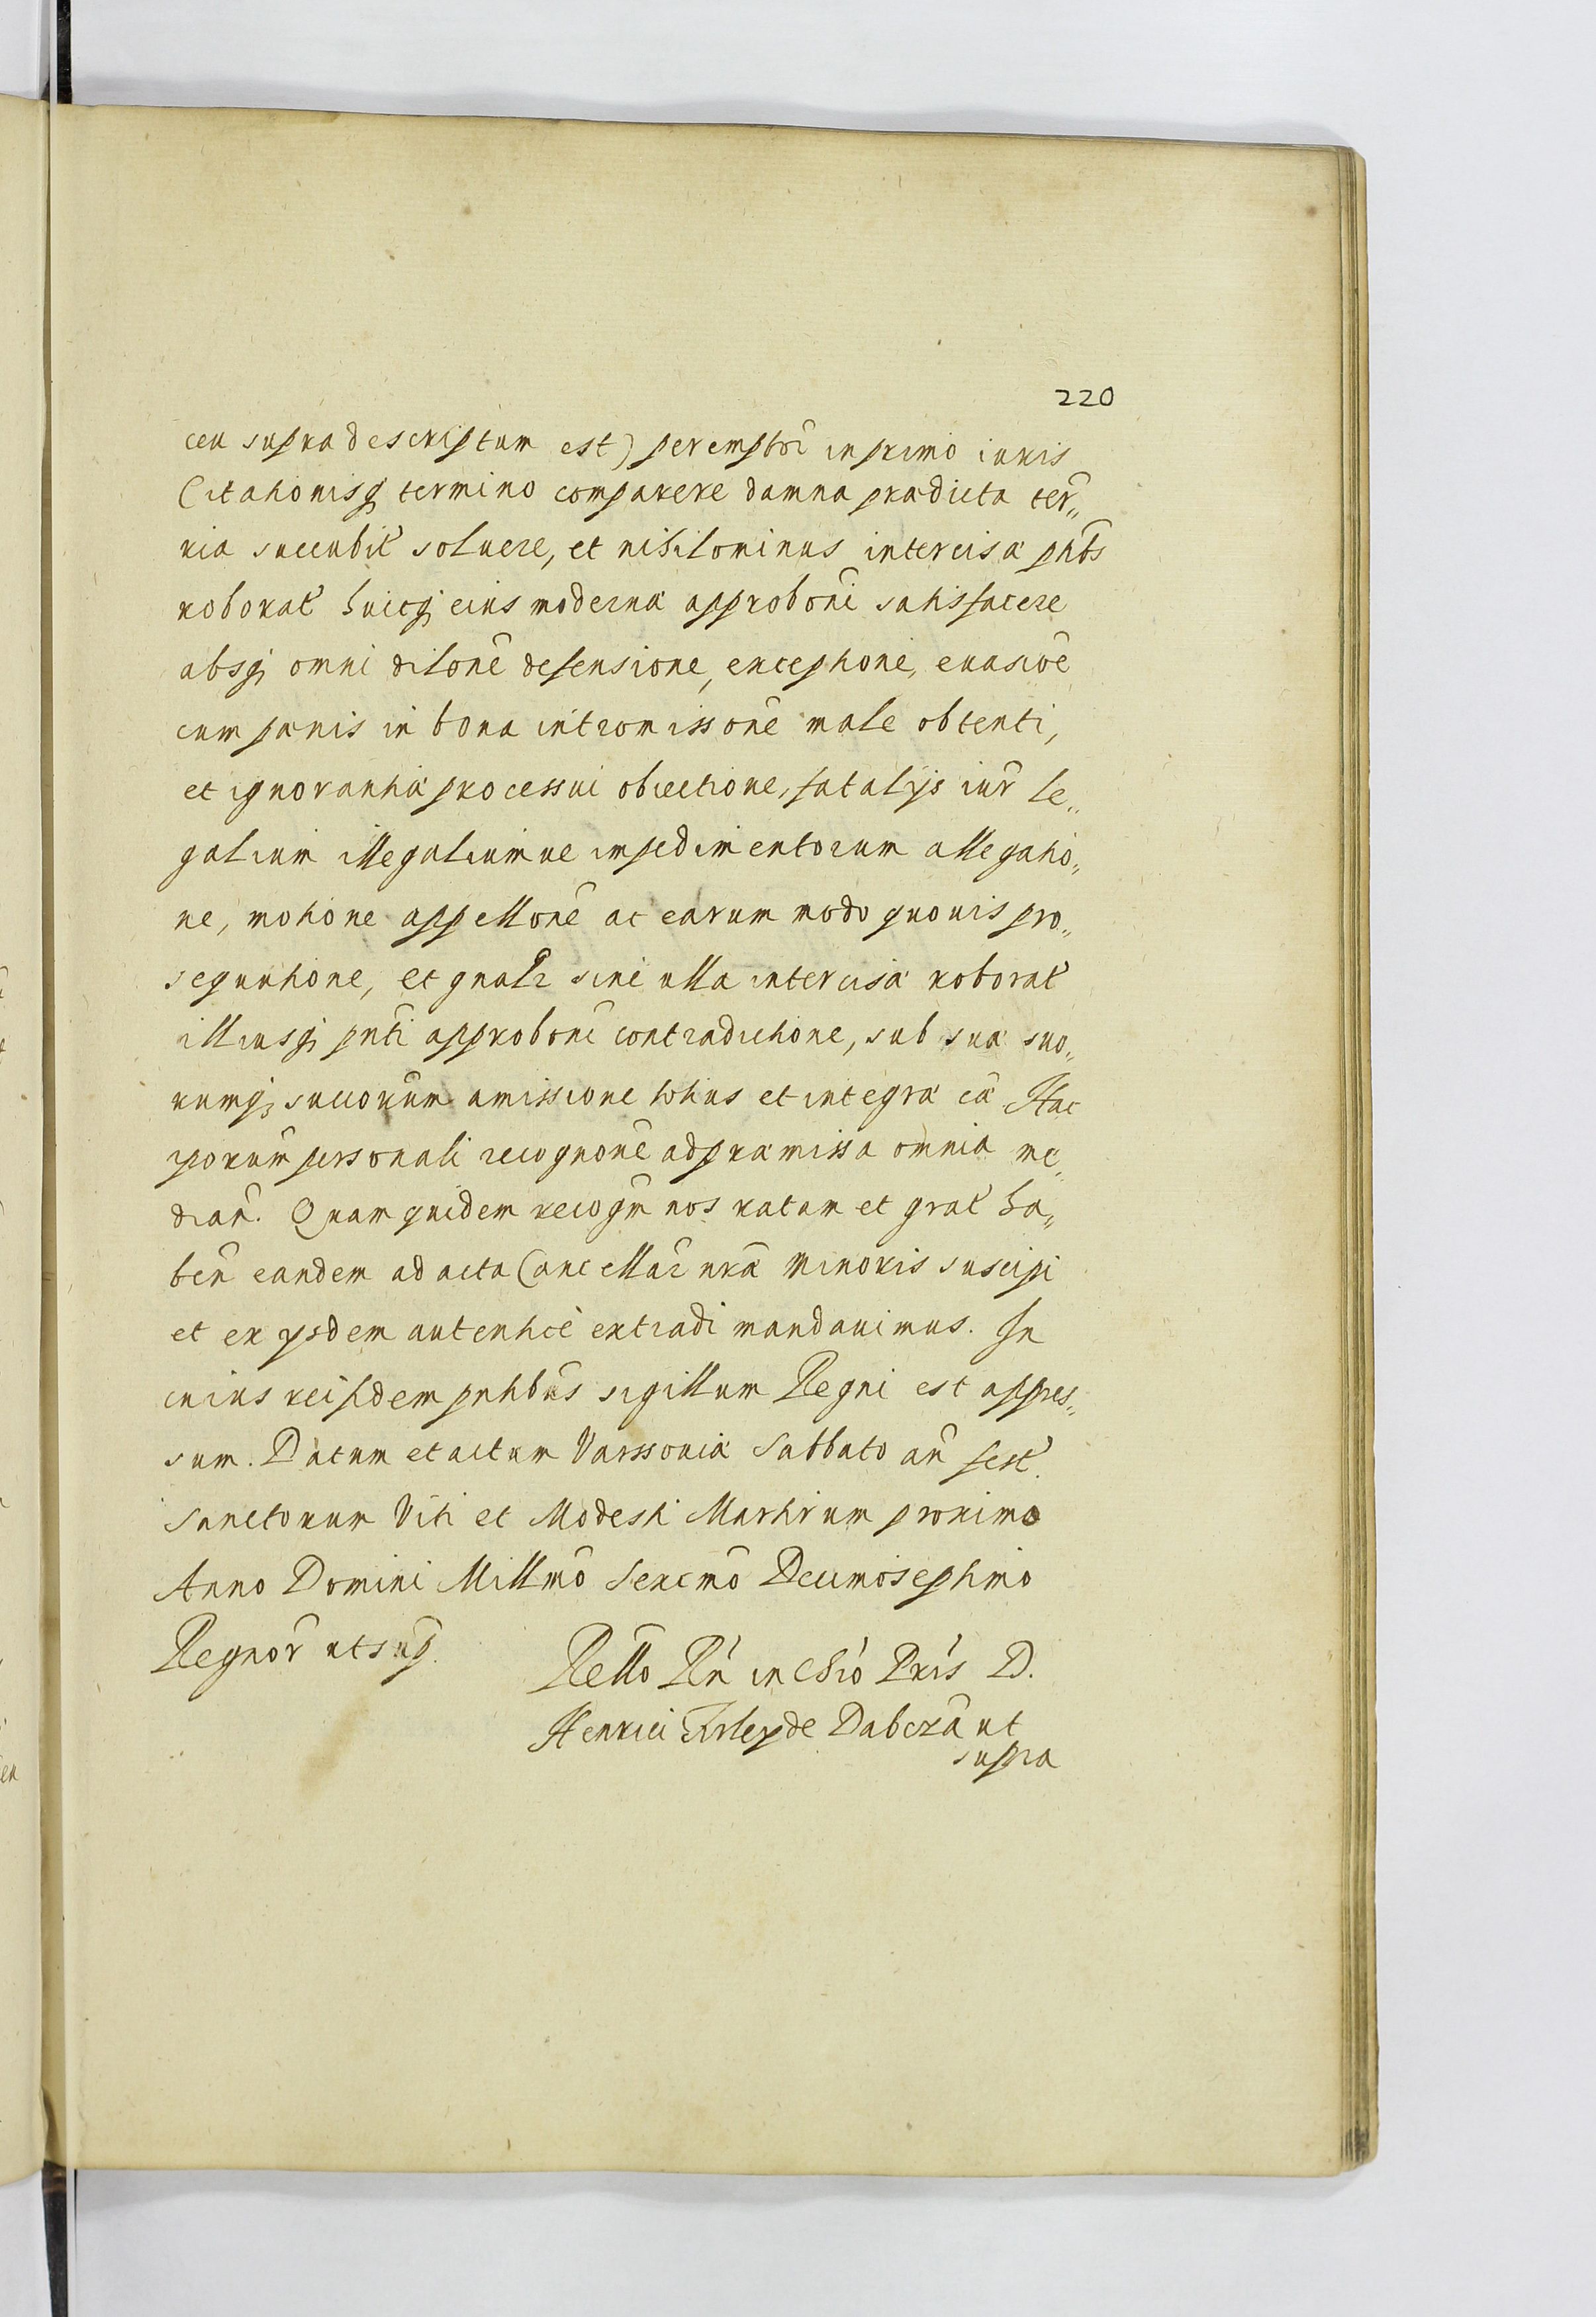 220
ceu supra descriptum est) peremptoẽ in primo iuris
Citationisq; termino comparere damna prædicta ter„
ria succubit̃ soluere, et nihilominus intercisæ pñtbs
roborat̃ huicq; eius modernæ approbõni satisfacere
absq; omni dilõne defensione, exceptione, euasiõe
cum pænis in bona intromissõne male obtenti,
et ignorantiæ processui obiectione, fatalijs iur̃ le„
galium illegaliumue impedimentorum allegatio„
ne, motione appellõne ac earum modo quouis pro„
sequutione, et gnalr̃ sine ulla intercisæ roborat̃
illiusq; pñti approbõni contradictione, sub sua suo„
rumq; succorum amissione totius et integræ cæ Hac
ipsorum personali recognõne ad præmissa omnia me„
dian̄. Quam quidem recogñ nos ratam et grat̃ ha„
beñ eandem ad acta Cancellar̃ nr̃æ Minoris suscipi
et ex ysdem autenticè extradi mandauimus. In
cuius rei fidem pñtibus sigillum Regni est appres„
sum. Datum et actum Varssouiæ Sabbato añ fest̃.
Sanctorum Viti et Modesti Martirum proximo
Anno Domini Millmõ Sexcmõ Decimoseptimo
Regnor̃ ut sup̃.
Rello Rñ in Chrõ Pr̃is D.
Henrici Firley de Dabrowã ut
supra